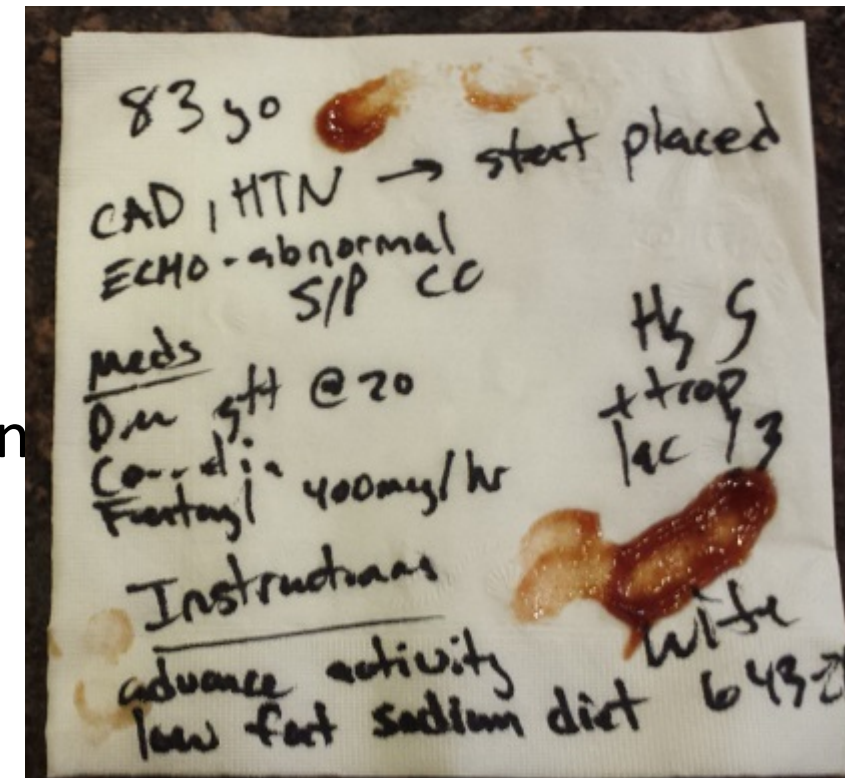 83 yo
CAD, HTN → stent placed
ECMO - abnormal
S/P CC
Meds
gtt @ 20
Fentanyl 400mcg/hr
Hg 5
+ trop
lac 13
Instructions
advance activity
low fat sodium diet
Wife
643-2
n